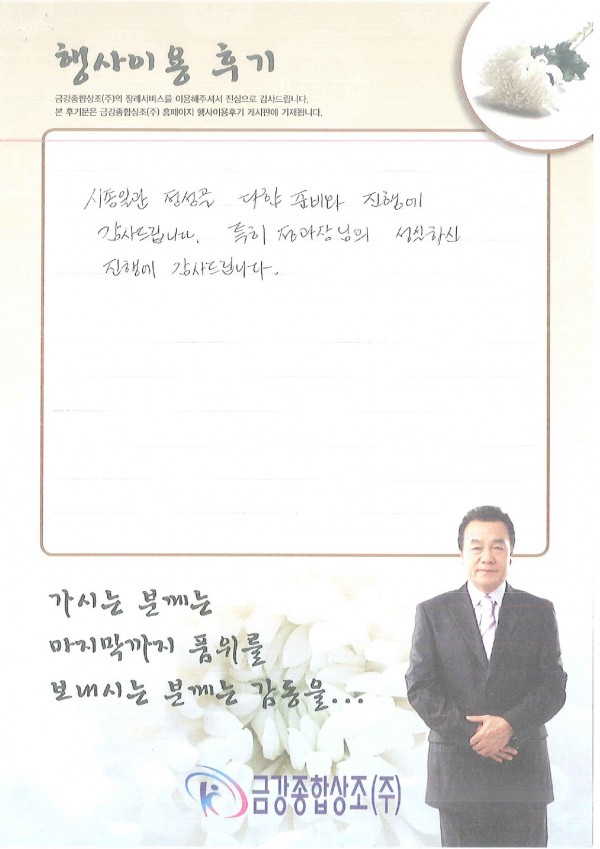 행사이용 후기
금강종합상조(주)의 장례서비스를 이용해주셔서 진심으로 감사드립니다.
본 후기문은 금강종합상조(주) 홈페이지 행사이용후기 게시판에 기재됩니다.
시종일관 정성껏 다한 준비와 진행에
감사드립니다. 특히 정과장님의 성실하신
진행에 감사드립니다.
가시는 분께는
마지막까지 품위를
보내시는 분께는 감동을...
금강종합상조(주)